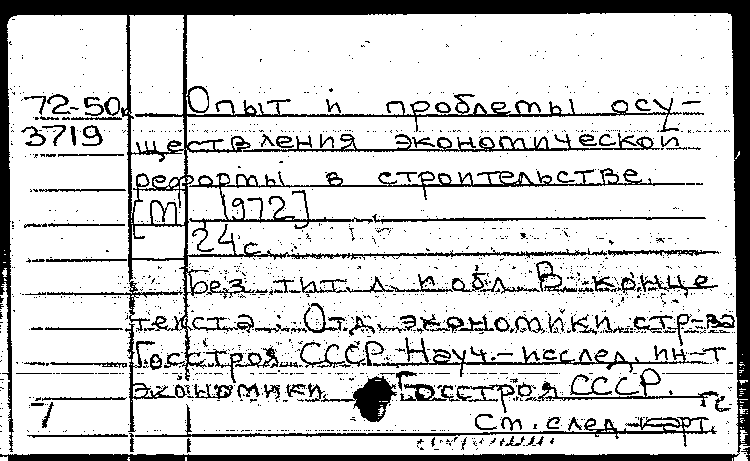 72-50к Опыт и проблемы осу-
3719 ществления экономической
реформы в строительстве.
[М 1972]
24с.
Без тит л и обл В конце
текста: Отд. экономики стр-ва
Госстроя СССР Науч.-исслед. ин-т
экономики Госстроя СССР.
7 См. след. карт.